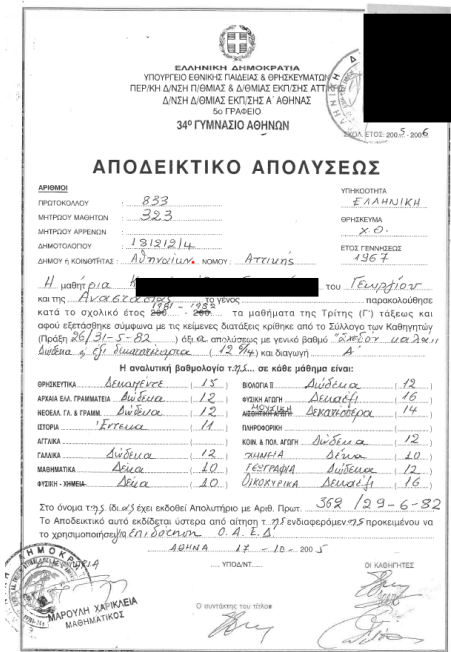 ΕΛΛΗΝΙΚΗ ΔΗΜΟΚΡΑΤΙΑ
ΥΠΟΥΡΓΕΙΟ ΕΘΝΙΚΗΣ ΠΑΙΔΕΙΑΣ & ΘΡΗΣΚΕΥΜΑΤΩΝ
ΠΕΡ/ΚΗ Δ/ΝΣΗ Π/ΘΜΙΑΣ & Δ/ΘΜΙΑΣ ΕΚΠ/ΣΗΣ ΑΤΤΙ
Δ/ΝΣΗ Δ/ΘΜΙΑΣ ΕΚΠ/ΣΗΣ Α΄ ΑΘΗΝΑΣ
5ο ΓΡΑΦΕΙΟ
34º ΓΥΜΝΑΣΙΟ ΑΘΗΝΩΝ
ΣΧΟΛ. ΕΤΟΣ: 2005 - 2006
ΑΠΟΔΕΙΚΤΙΚΟ ΑΠΟΛΥΣΕΩΣ
ΑΡΙΘΜΟΙ
ΠΡΩΤΟΚΟΛΛΟΥ : 833
ΜΗΤΡΩΟΥ ΜΑΘΗΤΩΝ : 323
ΜΗΤΡΩΟΥ ΑΡΡΕΝΩΝ :
ΔΗΜΟΤΟΛΟΓΙΟΥ : 13121214
ΔΗΜΟΥ ή ΚΟΙΝΟΤΗΤΑΣ : Αθηναίων ΝΟΜΟΥ : Αττικής
ΥΠΗΚΟΟΤΗΤΑ
ΕΛΛΗΝΙΚΗ
ΘΡΗΣΚΕΥΜΑ
Χ.Ο.
ΕΤΟΣ ΓΕΝΝΗΣΕΩΣ
1967
Η μαθήτρια του Γεωργίου
και της Αναστασίας το γένος παρακολούθησε
1981 - 1982
κατά το σχολικό έτος τα μαθήματα της Τρίτης (Γ΄) τάξεως και
αφού εξετάσθηκε σύμφωνα με τις κείμενες διατάξεις κρίθηκε από το Σύλλογο των Καθηγητών
(Πράξη 26/31-5-82) άξια απολύσεως με γενικό βαθμό σχεδόν καλά
Δώδεκα (12 ) και διαγωγή Α΄
Η αναλυτική βαθμολογία της σε κάθε μάθημα είναι:
ΘΡΗΣΚΕΥΤΙΚΑ Δεκαπέντε ( 15 )
ΑΡΧΑΙΑ ΕΛΛ. ΓΡΑΜΜΑΤΕΙΑ Δώδεκα ( 12 )
ΝΕΟΕΛΛ. ΓΛ. & ΓΡΑΜΜ. Δώδεκα ( 12 )
ΙΣΤΟΡΙΑ Έντεκα ( 11 )
ΑΓΓΛΙΚΑ ( )
ΓΑΛΛΙΚΑ Δώδεκα ( 12 )
ΜΑΘΗΜΑΤΙΚΑ Δέκα ( 10 )
ΦΥΣΙΚΗ - ΧΗΜΕΙΑ Δέκα ( 10 )
ΒΙΟΛΟΓΙΑ ΙΙ Δώδεκα ( 12 )
ΦΥΣΙΚΗ ΑΓΩΓΗ Δεκαέξι ( 16 )
ΜΟΥΣΙΚΗ
ΑΙΣΘΗΤΙΚΗ ΑΓΩΓΗ Δεκατέσσερα ( 14 )
ΠΛΗΡΟΦΟΡΙΚΗ ( )
ΚΟΙΝ. & ΠΟΛ. ΑΓΩΓΗ Δώδεκα ( 12 )
ΧΗΜΕΙΑ Δέκα ( 10 )
ΓΕΩΓΡΑΦΙΑ Δώδεκα ( 12 )
ΟΙΚΟΚΥΡΙΚΑ Δεκαέξι ( 16 )
Στο όνομα της ίδιας έχει εκδοθεί Απολυτήριο με Αριθ. Πρωτ. 362 /29-6-82
Το Αποδεικτικό αυτό εκδίδεται ύστερα από αίτηση της ενδιαφερόμενης προκειμένου να
το χρησιμοποιήσει για επιδότηση Ο.Α.Ε.Δ.
ΑΘΗΝΑ 17 - 10 - 2005
ΥΠΟΔ/ΝΤ
ΟΙ ΚΑΘΗΓΗΤΕΣ
ΜΑΡΟΥΛΗ ΧΑΡΙΚΛΕΙΑ
ΜΑΘΗΜΑΤΙΚΟΣ
Ο συντάκτης του τίτλου